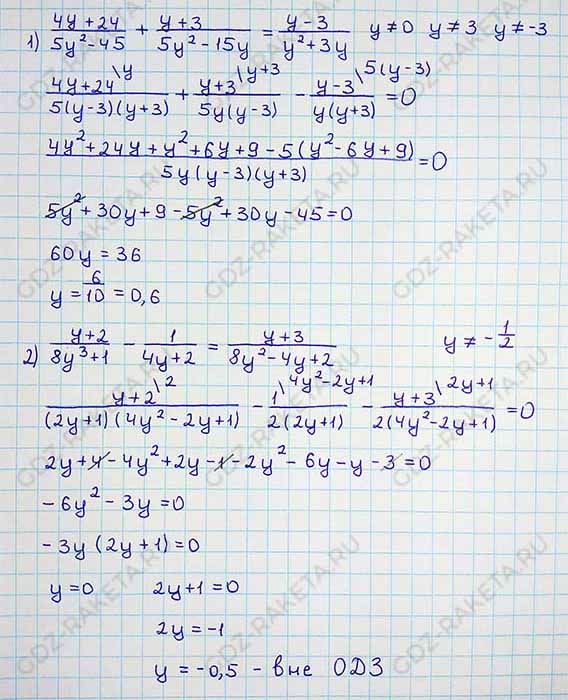 1) (4y+24)/(5y²-45) + (y+3)/(5y²-15y) = (y-3)/(y²+3y)   y≠0   y≠3   y≠-3
(4y+24\y)/(5(y-3)(y+3)) + (y+3\y+3)/(5y(y-3)) - (y-3\5(y-3))/(y(y+3)) =0
(4y²+24y+y²+6y+9-5(y²-6y+9))/(5y(y-3)(y+3)) =0
5y²+30y+9-5y²+30y-45=0
60y=36
y=6/10=0,6
2) (y+2)/(8y³+1) - 1/(4y+2) = (y+3)/(8y²-4y+2)   y≠-1/2
(y+2\2)/((2y+1)(4y²-2y+1)) - (1\4y²-2y+1)/(2(2y+1)) - (y+3\2y+1)/(2(4y²-2y+1)) =0
2y+4-4y²+2y-1-2y²-6y-y-3=0
-6y²-3y=0
-3y(2y+1)=0
y=0   2y+1=0
2y=-1
y=-0,5 - вне ОДЗ
GDZ-RAKETA.RU